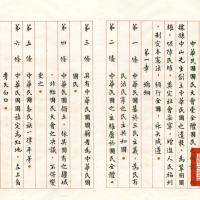 中華民國國民大會受全體國民
據孫中山先生創立中華民國之遺教為鞏固國
權保障民權奠定社會安寧增進人民福利
制定本憲法頒行全國永矢咸遵
第一章 總綱
第一條 中華民國基於三民主義為民有
民治民享之民主共和國
第二條 中華民國之主權屬於國民
第三條 具有中華民國國籍者為中華民國
國民
第四條 中華民國領土依其固有之疆域
非經國民大會之決議不得變
更之
第五條 中華民國各民族一律平等
第六條 中華民國國旗定為紅地左上角
青天白日